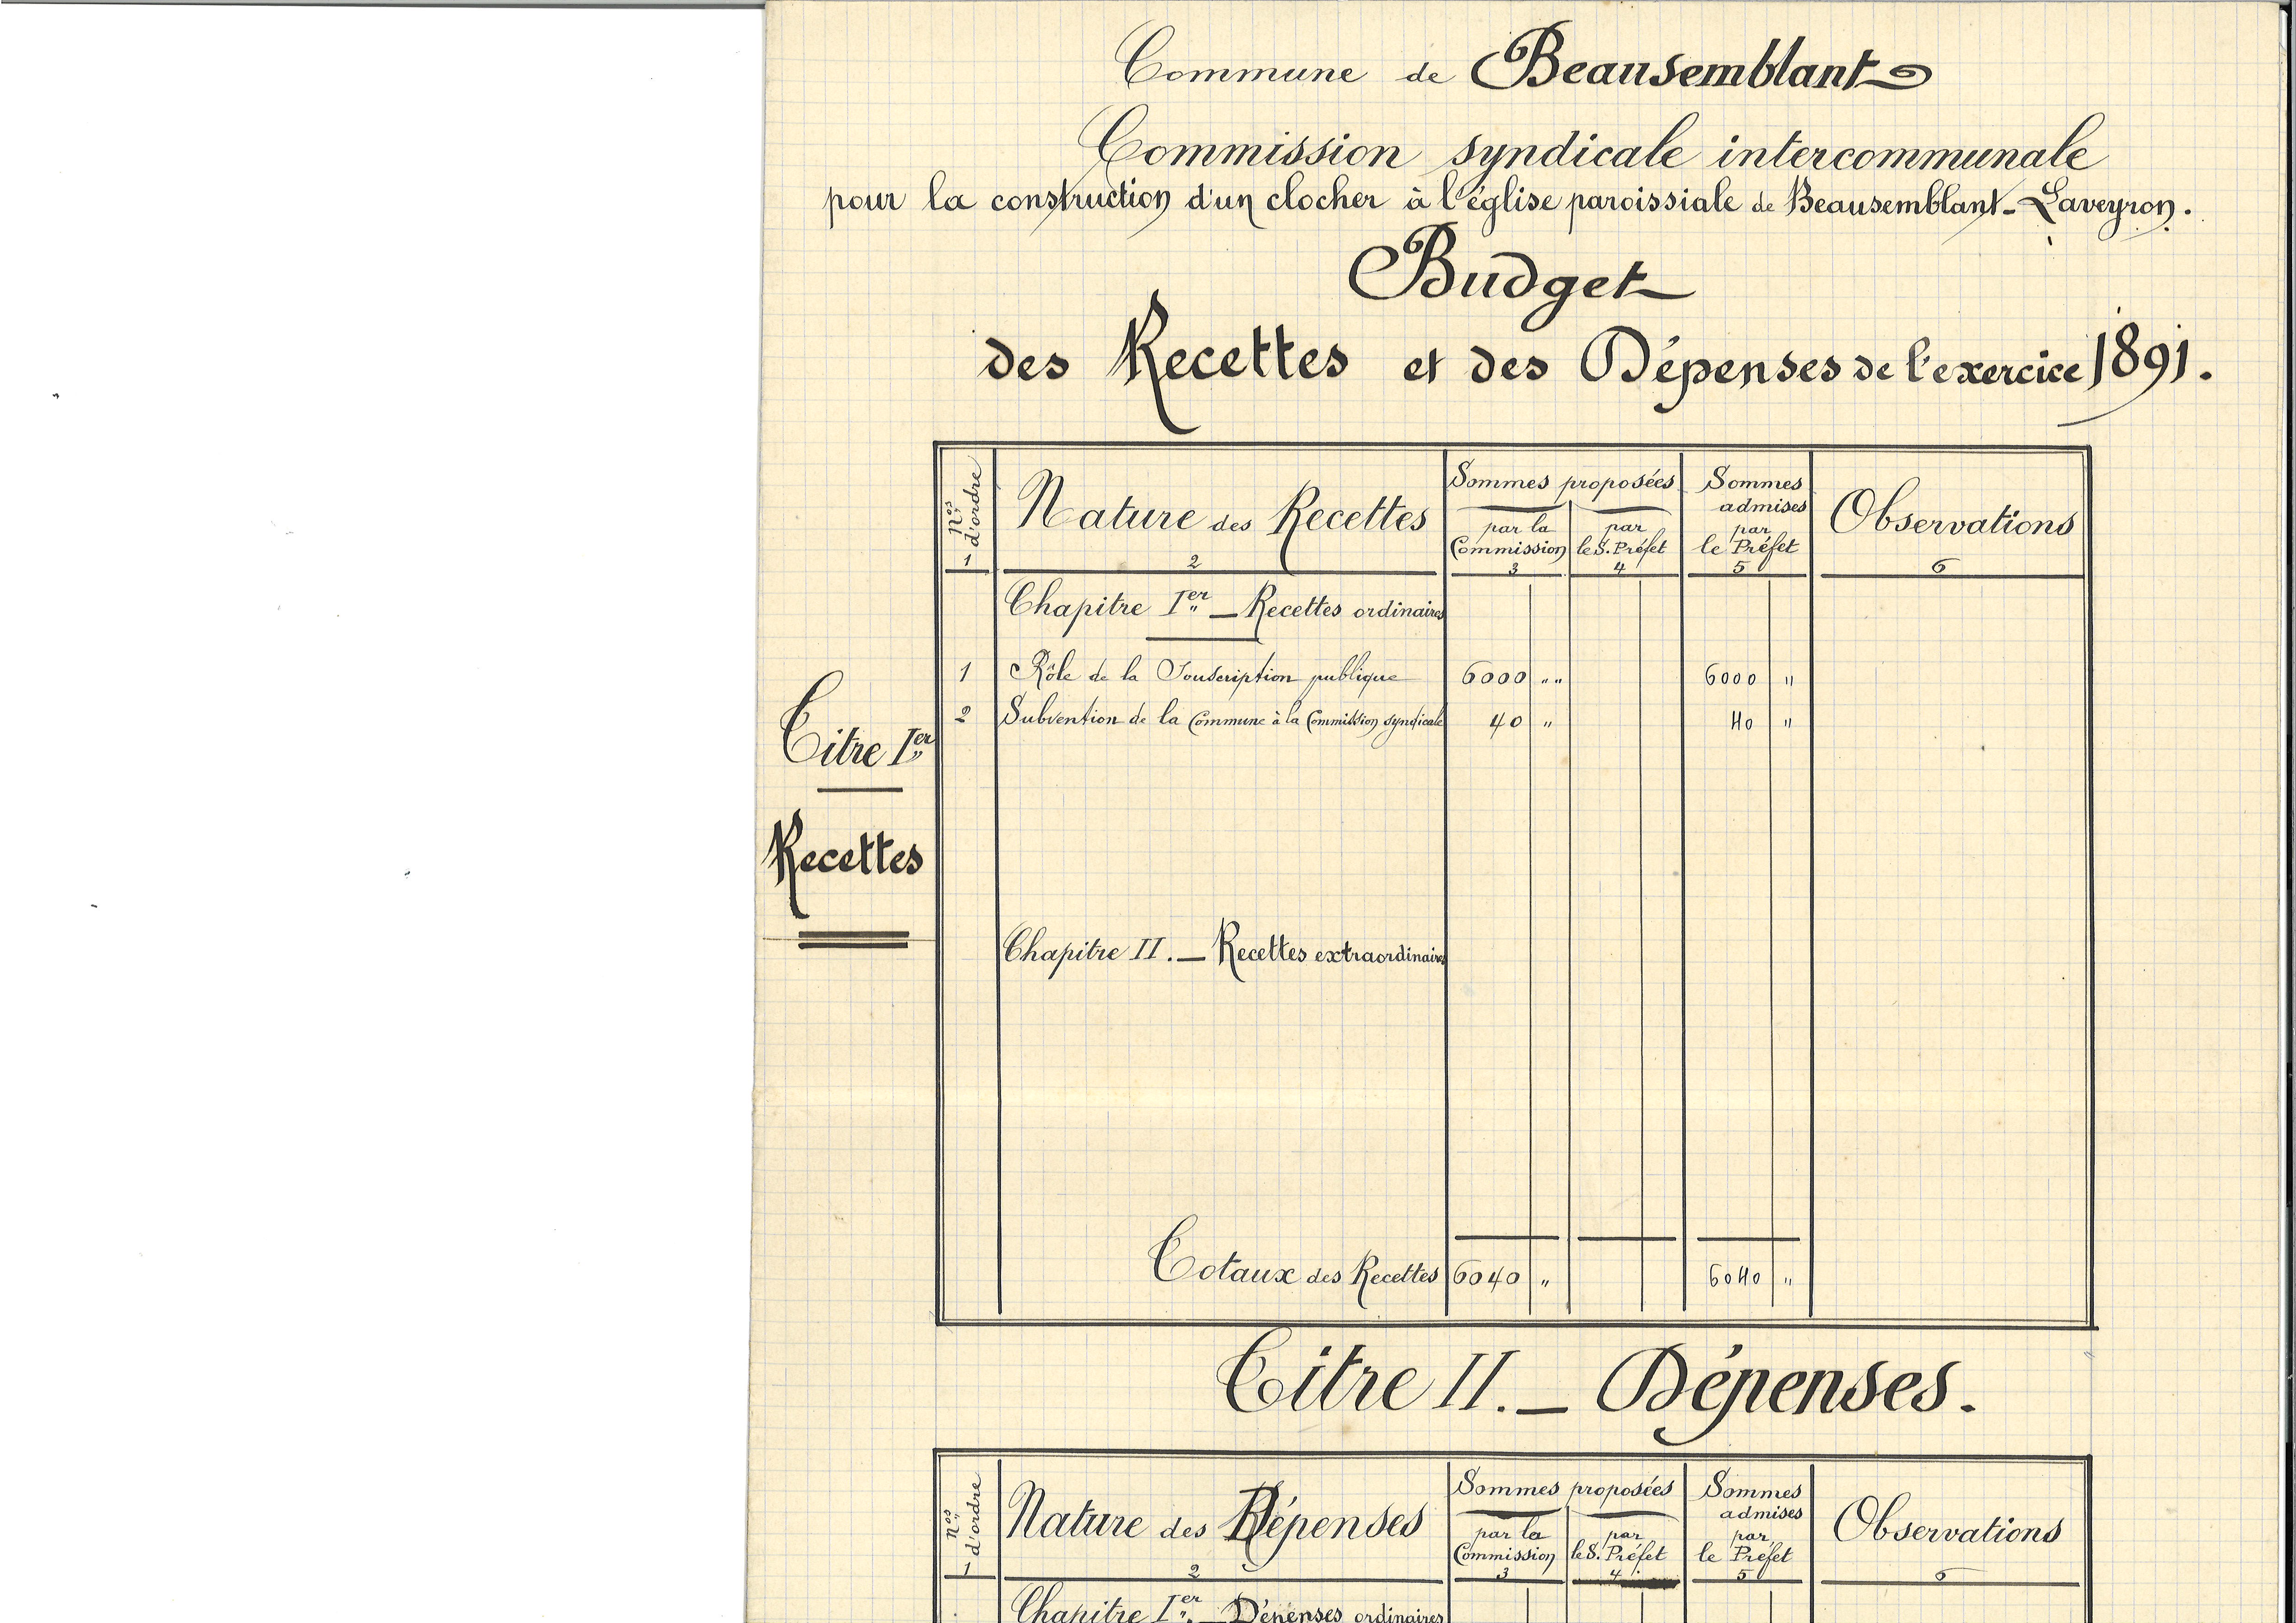 Commune de Beausemblant
Commission syndicale intercommunale
pour la construction d'un clocher à l'église paroissiale de Beausemblant-Laveyron.
Budget
des Recettes et des Dépenses de l'exercice 1891.
Nos d'ordre
Nature des Recettes
Sommes proposées
par la Commission
par le S. Préfet
Sommes admises par le Préfet
Observations
1 2 3 4 5 6
Titre Ier
Recettes
Chapitre Ier — Recettes ordinaires
1 Rôle de la Souscription publique 6000 „„ 6000 "
2 Subvention de la Commune à la Commission syndicale 40 " 40 "
Chapitre II. — Recettes extraordinaires
Totaux des Recettes 6040 " 6040 "
Titre II. — Dépenses.
Nos d'ordre
Nature des Dépenses
Sommes proposées
par la Commission
par le S. Préfet
Sommes admises par le Préfet
Observations
1 2 3 4 5 6
Chapitre Ier. — Dépenses ordinaires